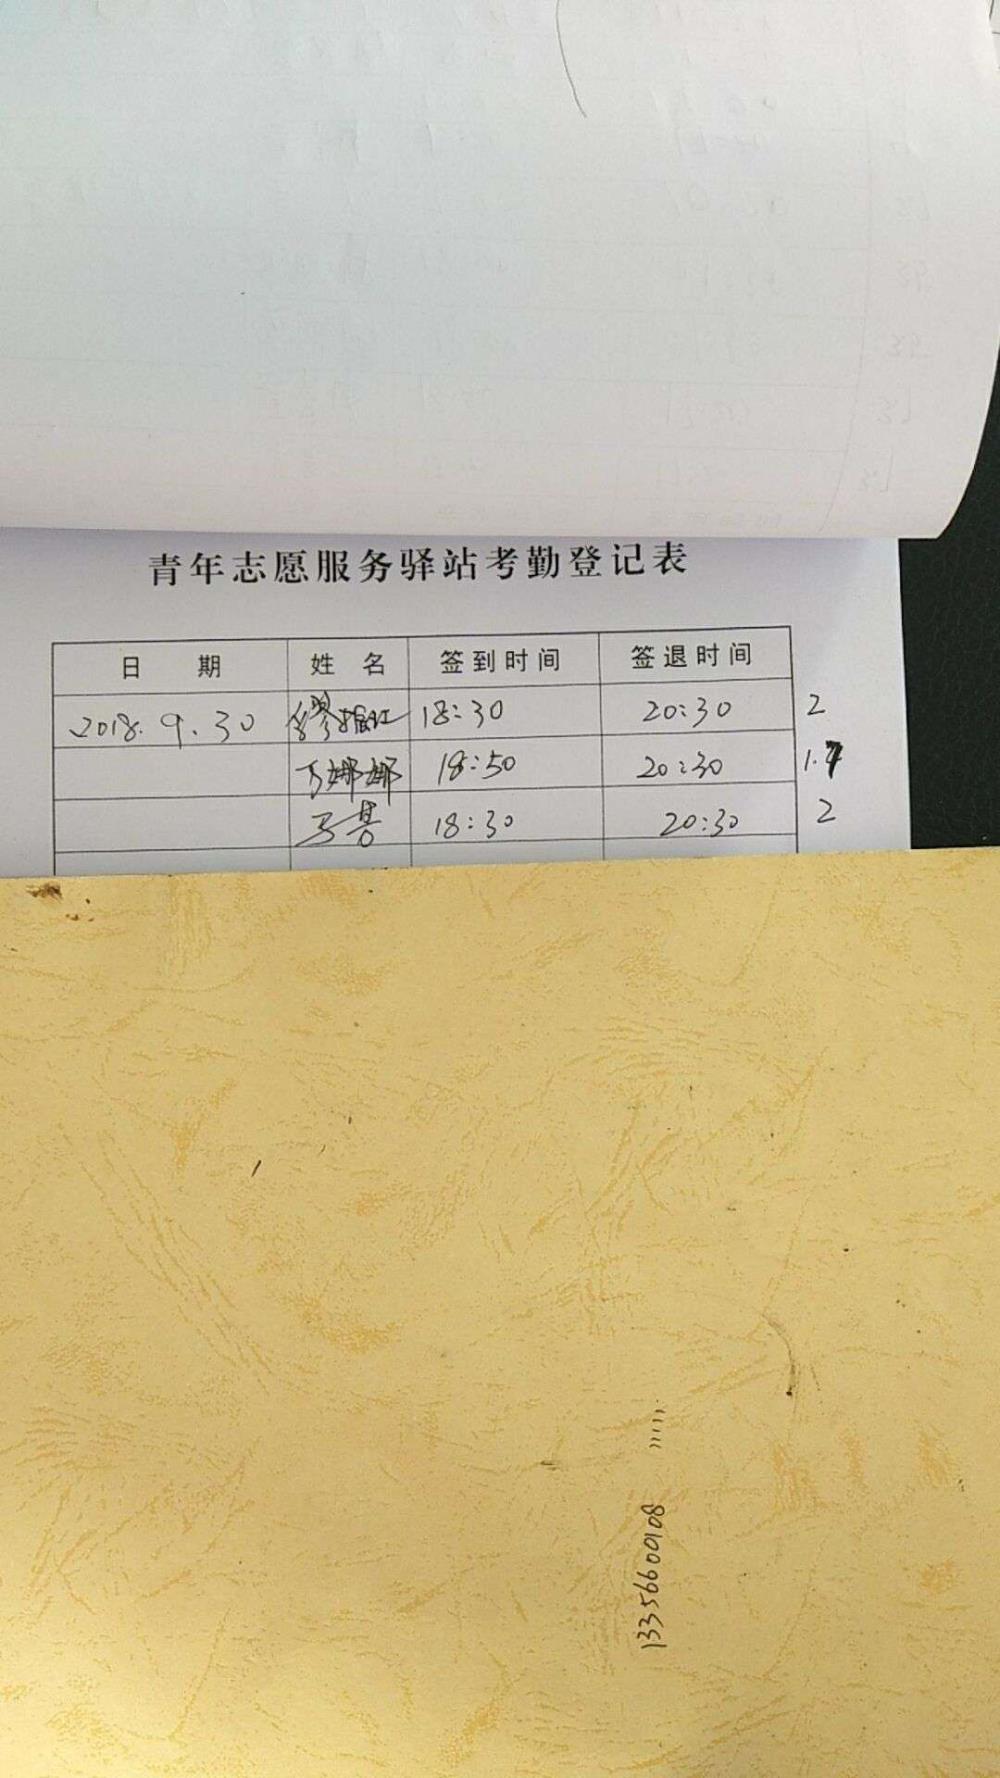 青年志愿服务驿站考勤登记表
日 期 姓 名 签到时间 签退时间
2018.9.30 缪 18:30 20:30 2
万娜娜 18:50 20:30 1.7
18:30 20:30 2
13356600108